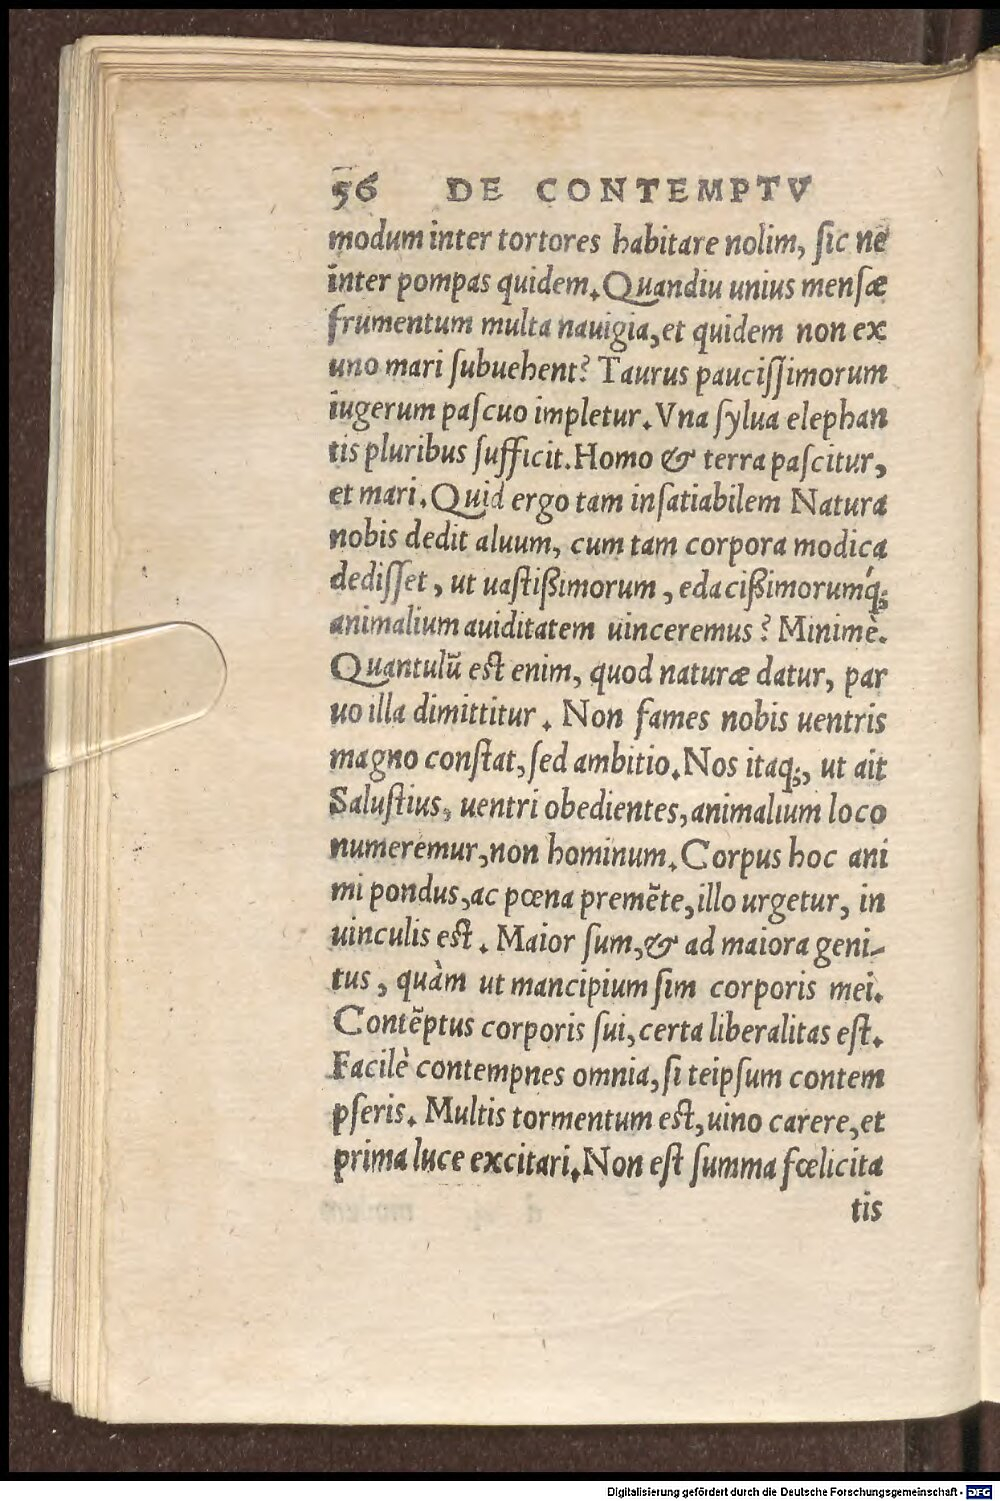 56 DE CONTEMPTV
modum inter tortores habitare nolim, sic ne
inter pompas quidem. Quandiu unius mensæ
frumentum multa nauigia, et quidem non ex
uno mari subuehent? Taurus paucissimorum
iugerum pascuo impletur. Vna sylua elephan
tis pluribus sufficit. Homo & terra pascitur,
et mari. Quid ergo tam insatiabilem Natura
nobis dedit aluum, cum tam corpora modica
dedisset, ut uastißimorum, edacißimorumq́;
animalium auiditatem uinceremus? Minimè.
Quantulū est enim, quod naturæ datur, par
uo illa dimittitur. Non fames nobis uentris
magno constat, sed ambitio. Nos itaq;, ut ait
Salustius, uentri obedientes, animalium loco
numeremur, non hominum. Corpus hoc ani
mi pondus, ac pœna premēte, illo urgetur, in
uinculis est. Maior sum, & ad maiora geni-
tus, quàm ut mancipium sim corporis mei.
Contēptus corporis sui, certa liberalitas est.
Facilè contempnes omnia, si teipsum contem
pseris. Multis tormentum est, uino carere, et
prima luce excitari. Non est summa fœlicita
tis
Digitalisierung gefördert durch die Deutsche Forschungsgemeinschaft - DFG